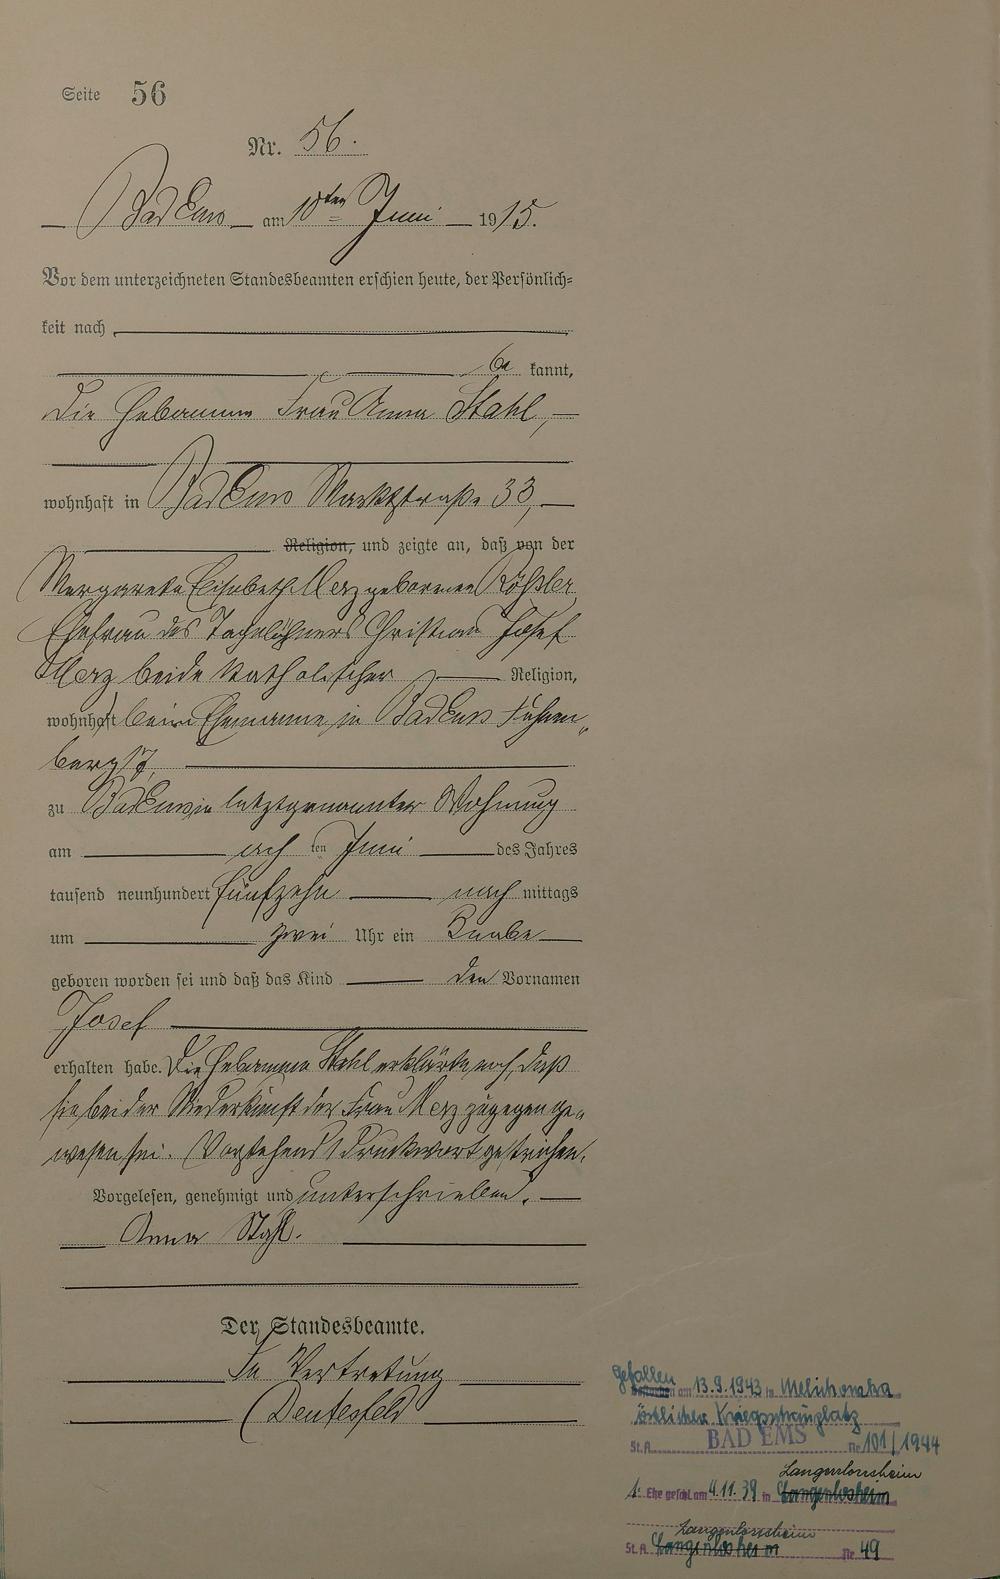 Seite 56
Nr. 56.
Bad Ems am 10ten Juni 1915.
Vor dem unterzeichneten Standesbeamten erschien heute, der Persönlich=
keit nach
be kannt,
die Hebamme Frau Anna Stahl,
wohnhaft in Bad Ems Marktstraße 33,
Religion, und zeigte an, daß von der
Margareta Elisabeth Merz geborenen Rößler
Ehefrau des Tagelöhners Christian Josef
Merz beide katholischer Religion,
wohnhaft beim Ehemanne in Bad Ems
zu Bad Ems in letztgenannter Wohnung
am ach ten Juni des Jahres
tausend neunhundert fünfzehn nach mittags
um zwei Uhr ein Knabe
geboren worden sei und daß das Kind den Vornamen
Josef
erhalten habe. Die Hebamme Stahl erklärte noch, daß
sie bei der Niederkunft der Frau Merz zugegen ge„
wesen sei. Vorstehend 1 Druckwort gestrichen.
Vorgelesen, genehmigt und unterschrieben.
Anna Stahl.
Der Standesbeamte.
In Vertretung
gefallen am 13.9.1943 in
östlicher Kriegsschauplatz
St.A. BAD EMS Nr. 101/1944
Langenlonsheim
1. Ehe geschl. am 4.11.39 in Langenlosheim
Langenlonsheim
St.A. Langenlosheim Nr. 49